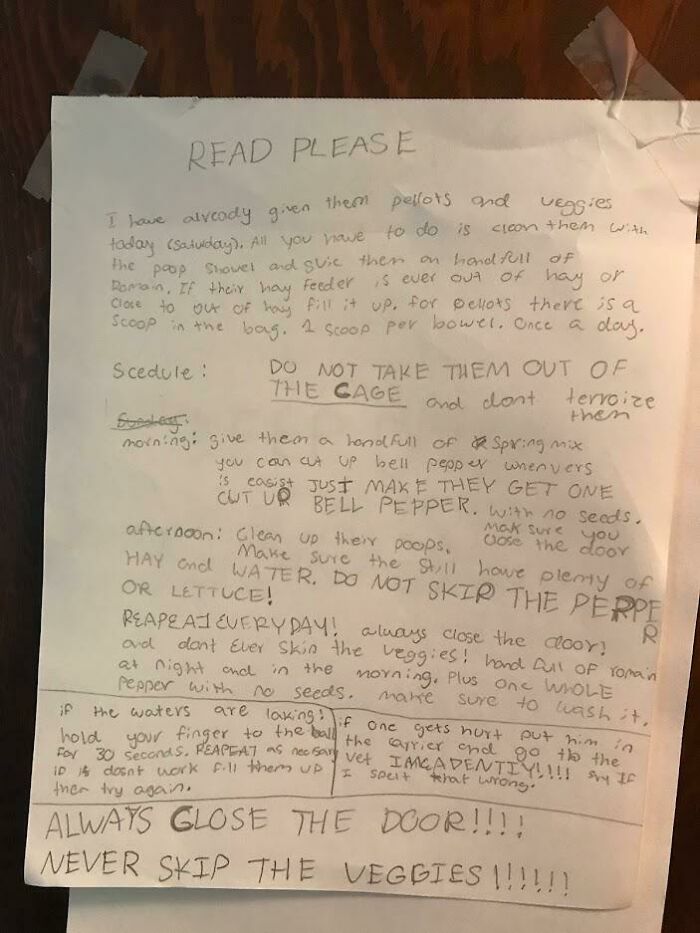 READ PLEASE
I have already given them pellots and veggies
today (Satuday). All you have to do is clean them with
the poop shovel and give them an handfull of
Romain. If their hay feeder is ever out of hay or
Close to out of hay fill it up. for pellots there is a
Scoop in the bag. 1 scoop per bowel. Once a day.
Scedule: DO NOT TAKE THEM OUT OF
THE CAGE and dont terroize
them
Sunday:
morning: give them a handfull of Spring mix
you can cut up bell pepper whenvers
is easist JUST MAKE THEY GET ONE
CUT UP BELL PEPPER. with no seeds.
afternoon: Clean up their poops. mak sure you
close the door
Make sure the still have plenty of
HAY and WATER. DO NOT SKIP THE PEPPE
R
OR LETTUCE!
REAPEAT EVERYDAY! always close the door!
and dont Ever skip the veggies! hand full of romain
at night and in the morning. Plus one WHOLE
Pepper with no seeds. make sure to wash it.
if the waters are laking:
hold your finger to the ball
for 30 seconds. REAPEAT as necisary
if it dosnt work fill them up
then try again.
if one gets hurt put him in
the carrier and go to the
vet IMEADENTIY!!!! sry If
I spelt that wrong.
ALWAYS CLOSE THE DOOR!!!!
NEVER SKIP THE VEGGIES!!!!!!